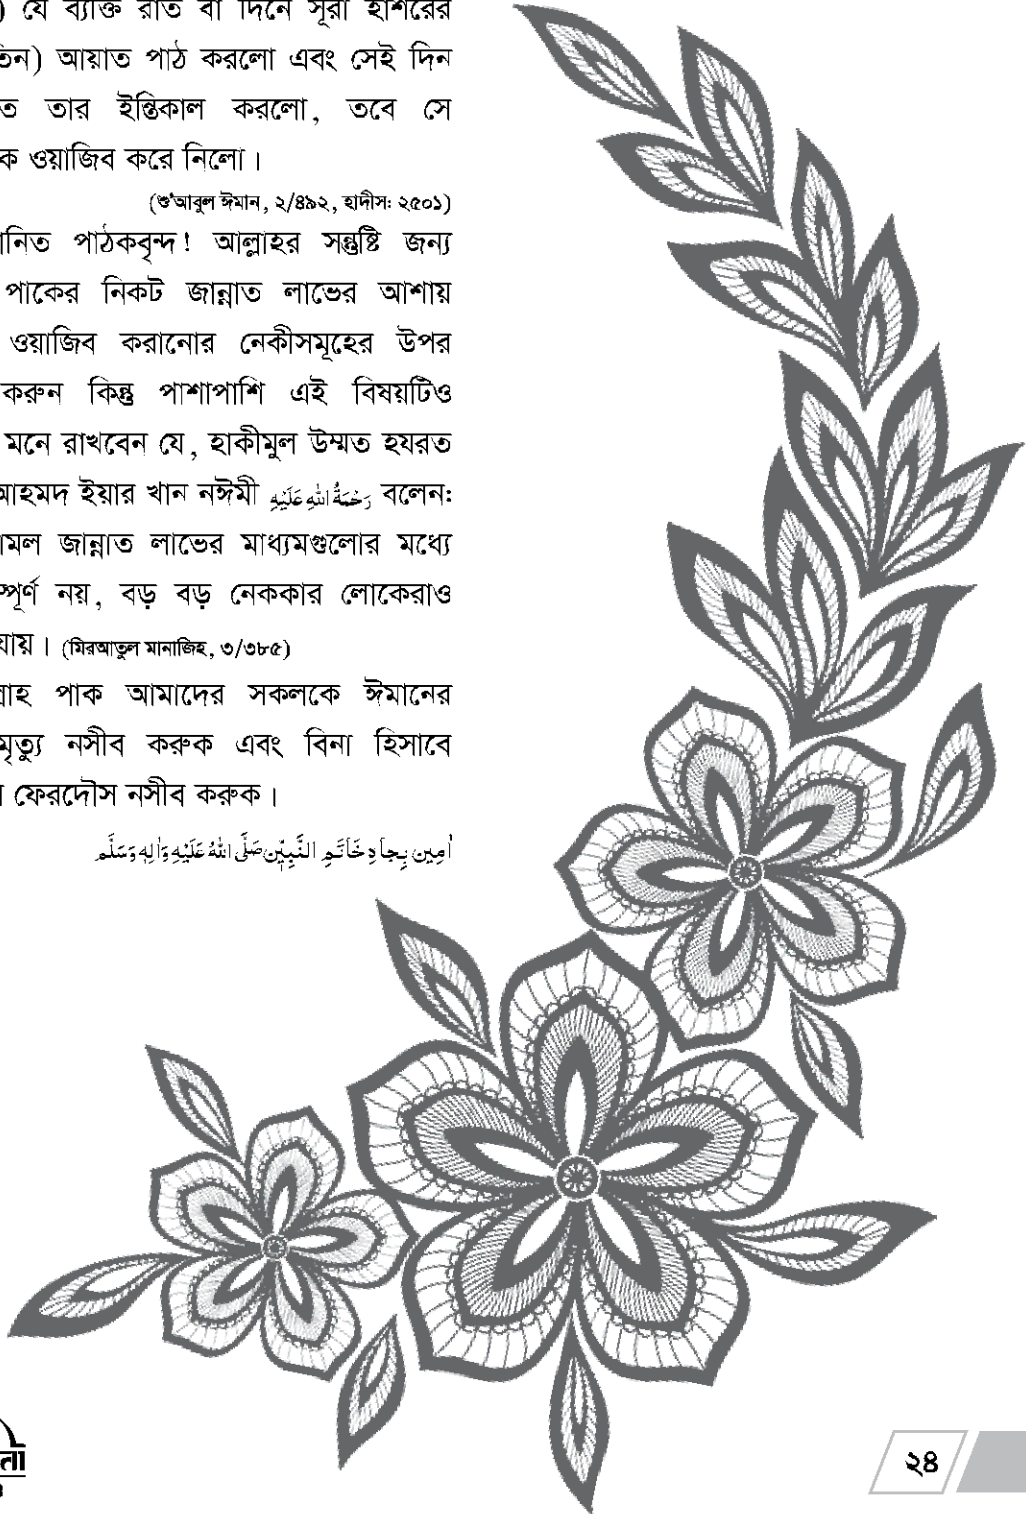 ) যে ব্যক্তি রাত বা দিনে সূরা হাশরের
তিন) আয়াত পাঠ করলো এবং সেই দিন
ত তার ইন্তিকাল করলো, তবে সে
ক ওয়াজিব করে নিলো।
(শু'আবুল ঈমান, ২/৪৯২, হাদীস: ২৫০১)
মানিত পাঠকবৃন্দ! আল্লাহর সন্তুষ্টি জন্য
পাকের নিকট জান্নাত লাভের আশায়
ওয়াজিব করানোর নেকীসমূহের উপর
করুন কিন্তু পাশাপাশি এই বিষয়টিও
মনে রাখবেন যে, হাকীমুল উম্মত হযরত
আহমদ ইয়ার খান নঈমী رَحْمَةُ اللهِ عَلَيْهِ বলেন:
আমল জান্নাত লাভের মাধ্যমগুলোর মধ্যে
ম্পূর্ণ নয়, বড় বড় নেককার লোকেরাও
যায়। (মিরআতুল মানাজিহ, ৩/৩৮৫)
ল্লাহ পাক আমাদের সকলকে ঈমানের
মৃত্যু নসীব করুক এবং বিনা হিসাবে
ফেরদৌস নসীব করুক।
اٰمِين بِجاهِ خَاتَمِ النَّبِيّٖن صَلَّى اللهُ عَلَيْهِ وَاٰلِهٖ وَسَلَّم
২৪